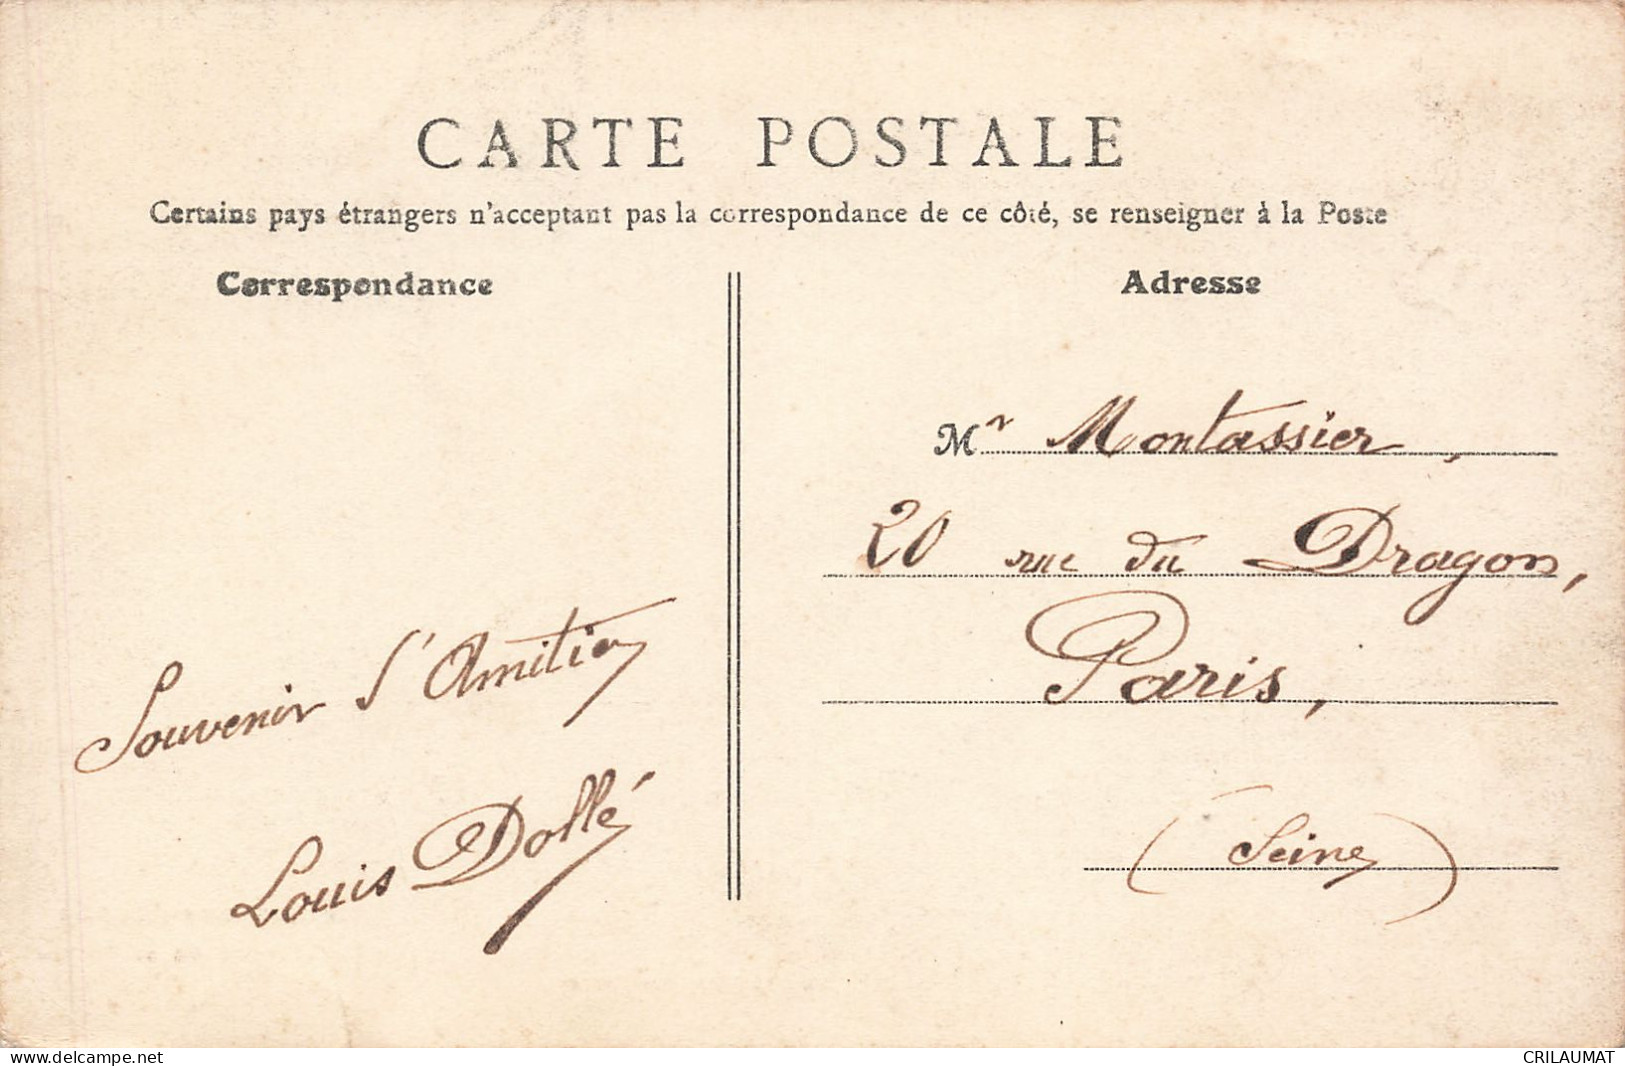 CARTE POSTALE
Certains pays étrangers n'acceptant pas la correspondance de ce côté, se renseigner à la Poste
Correspondance
Souvenir d'Amitié
Louis Dollé
Adresse
Mr Montassier,
20 rue du Dragon,
Paris,
(Seine)
www.delcampe.net
CRILAUMAT